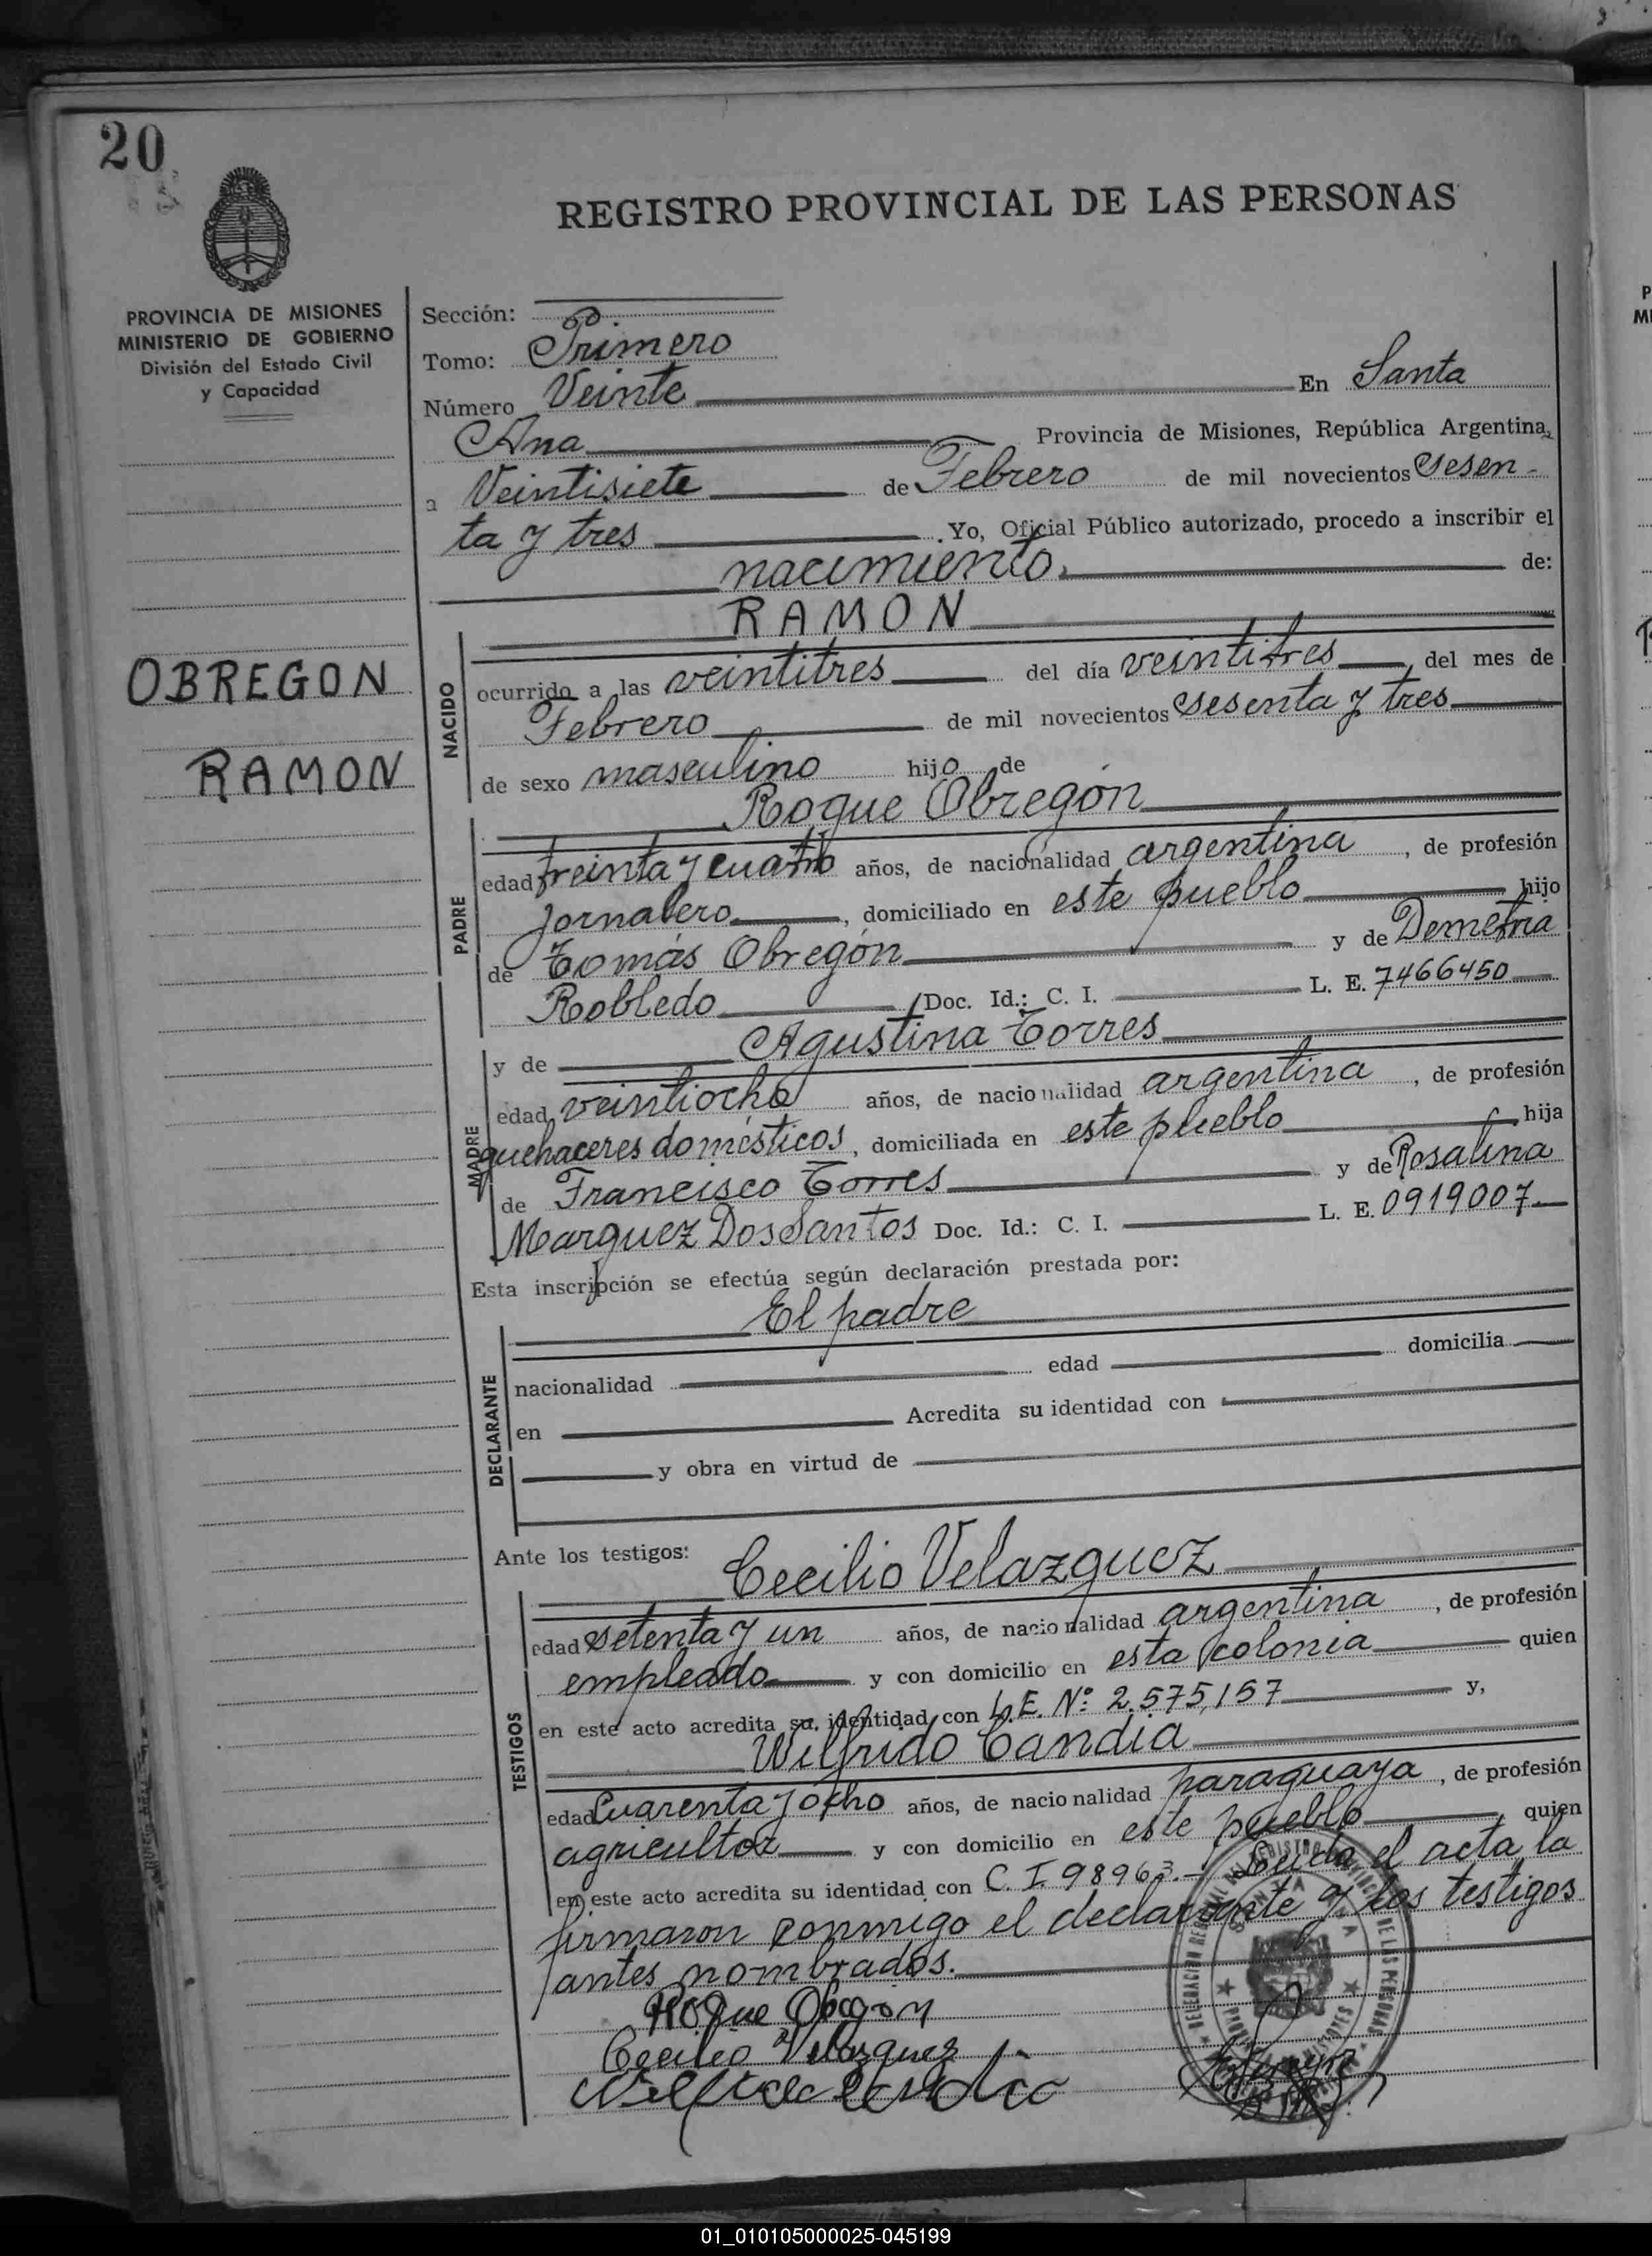 20
REGISTRO PROVINCIAL DE LAS PERSONAS
PROVINCIA DE MISIONES
MINISTERIO DE GOBIERNO
División del Estado Civil
y Capacidad
OBREGON
RAMON
Sección:
Tomo: Primero
Número Veinte En Santa
Ana Provincia de Misiones, República Argentina,
a Veintisiete de Febrero de mil novecientos sesen-
ta y tres . Yo, Oficial Público autorizado, procedo a inscribir el
nacimiento. de:
RAMON
NACIDO
ocurrido a las veintitres del día veintitres, del mes de
Febrero de mil novecientos sesenta y tres
de sexo masculino hijo de
Roque Obregón
PADRE
edad treinta y cuatro años, de nacionalidad argentina, de profesión
jornalero, domiciliado en este pueblo hijo
de Tomás Obregón y de Demetria
Robledo Doc. Id.: C. I. L. E. 7466450
MADRE
y de Agustina Torres
edad veintiocho años, de nacionalidad argentina, de profesión
quehaceres domésticos, domiciliada en este pueblo, hija
de Francisco Torres y de Rosalina
Marquez Dos Santos Doc. Id.: C. I. L. E. 0919007
Esta inscripción se efectúa según declaración prestada por:
El padre
DECLARANTE
nacionalidad edad domicilia
en Acredita su identidad con
y obra en virtud de
Ante los testigos:
Cecilio Velazquez
TESTIGOS
edad setenta y un años, de nacionalidad argentina, de profesión
empleado y con domicilio en esta colonia quien
en este acto acredita su identidad con L.E. Nº 2.575,157 y,
Wilfrido Candia
edad cuarenta y ocho años, de nacionalidad paraguaya, de profesión
agricultor y con domicilio en este pueblo, quien
en este acto acredita su identidad con C. I. 98963.- Leída el acta la
firmaron conmigo el declarante y los testigos
antes nombrados.
Roque Obregon
Cecilio Velazquez
01_010105000025-045199